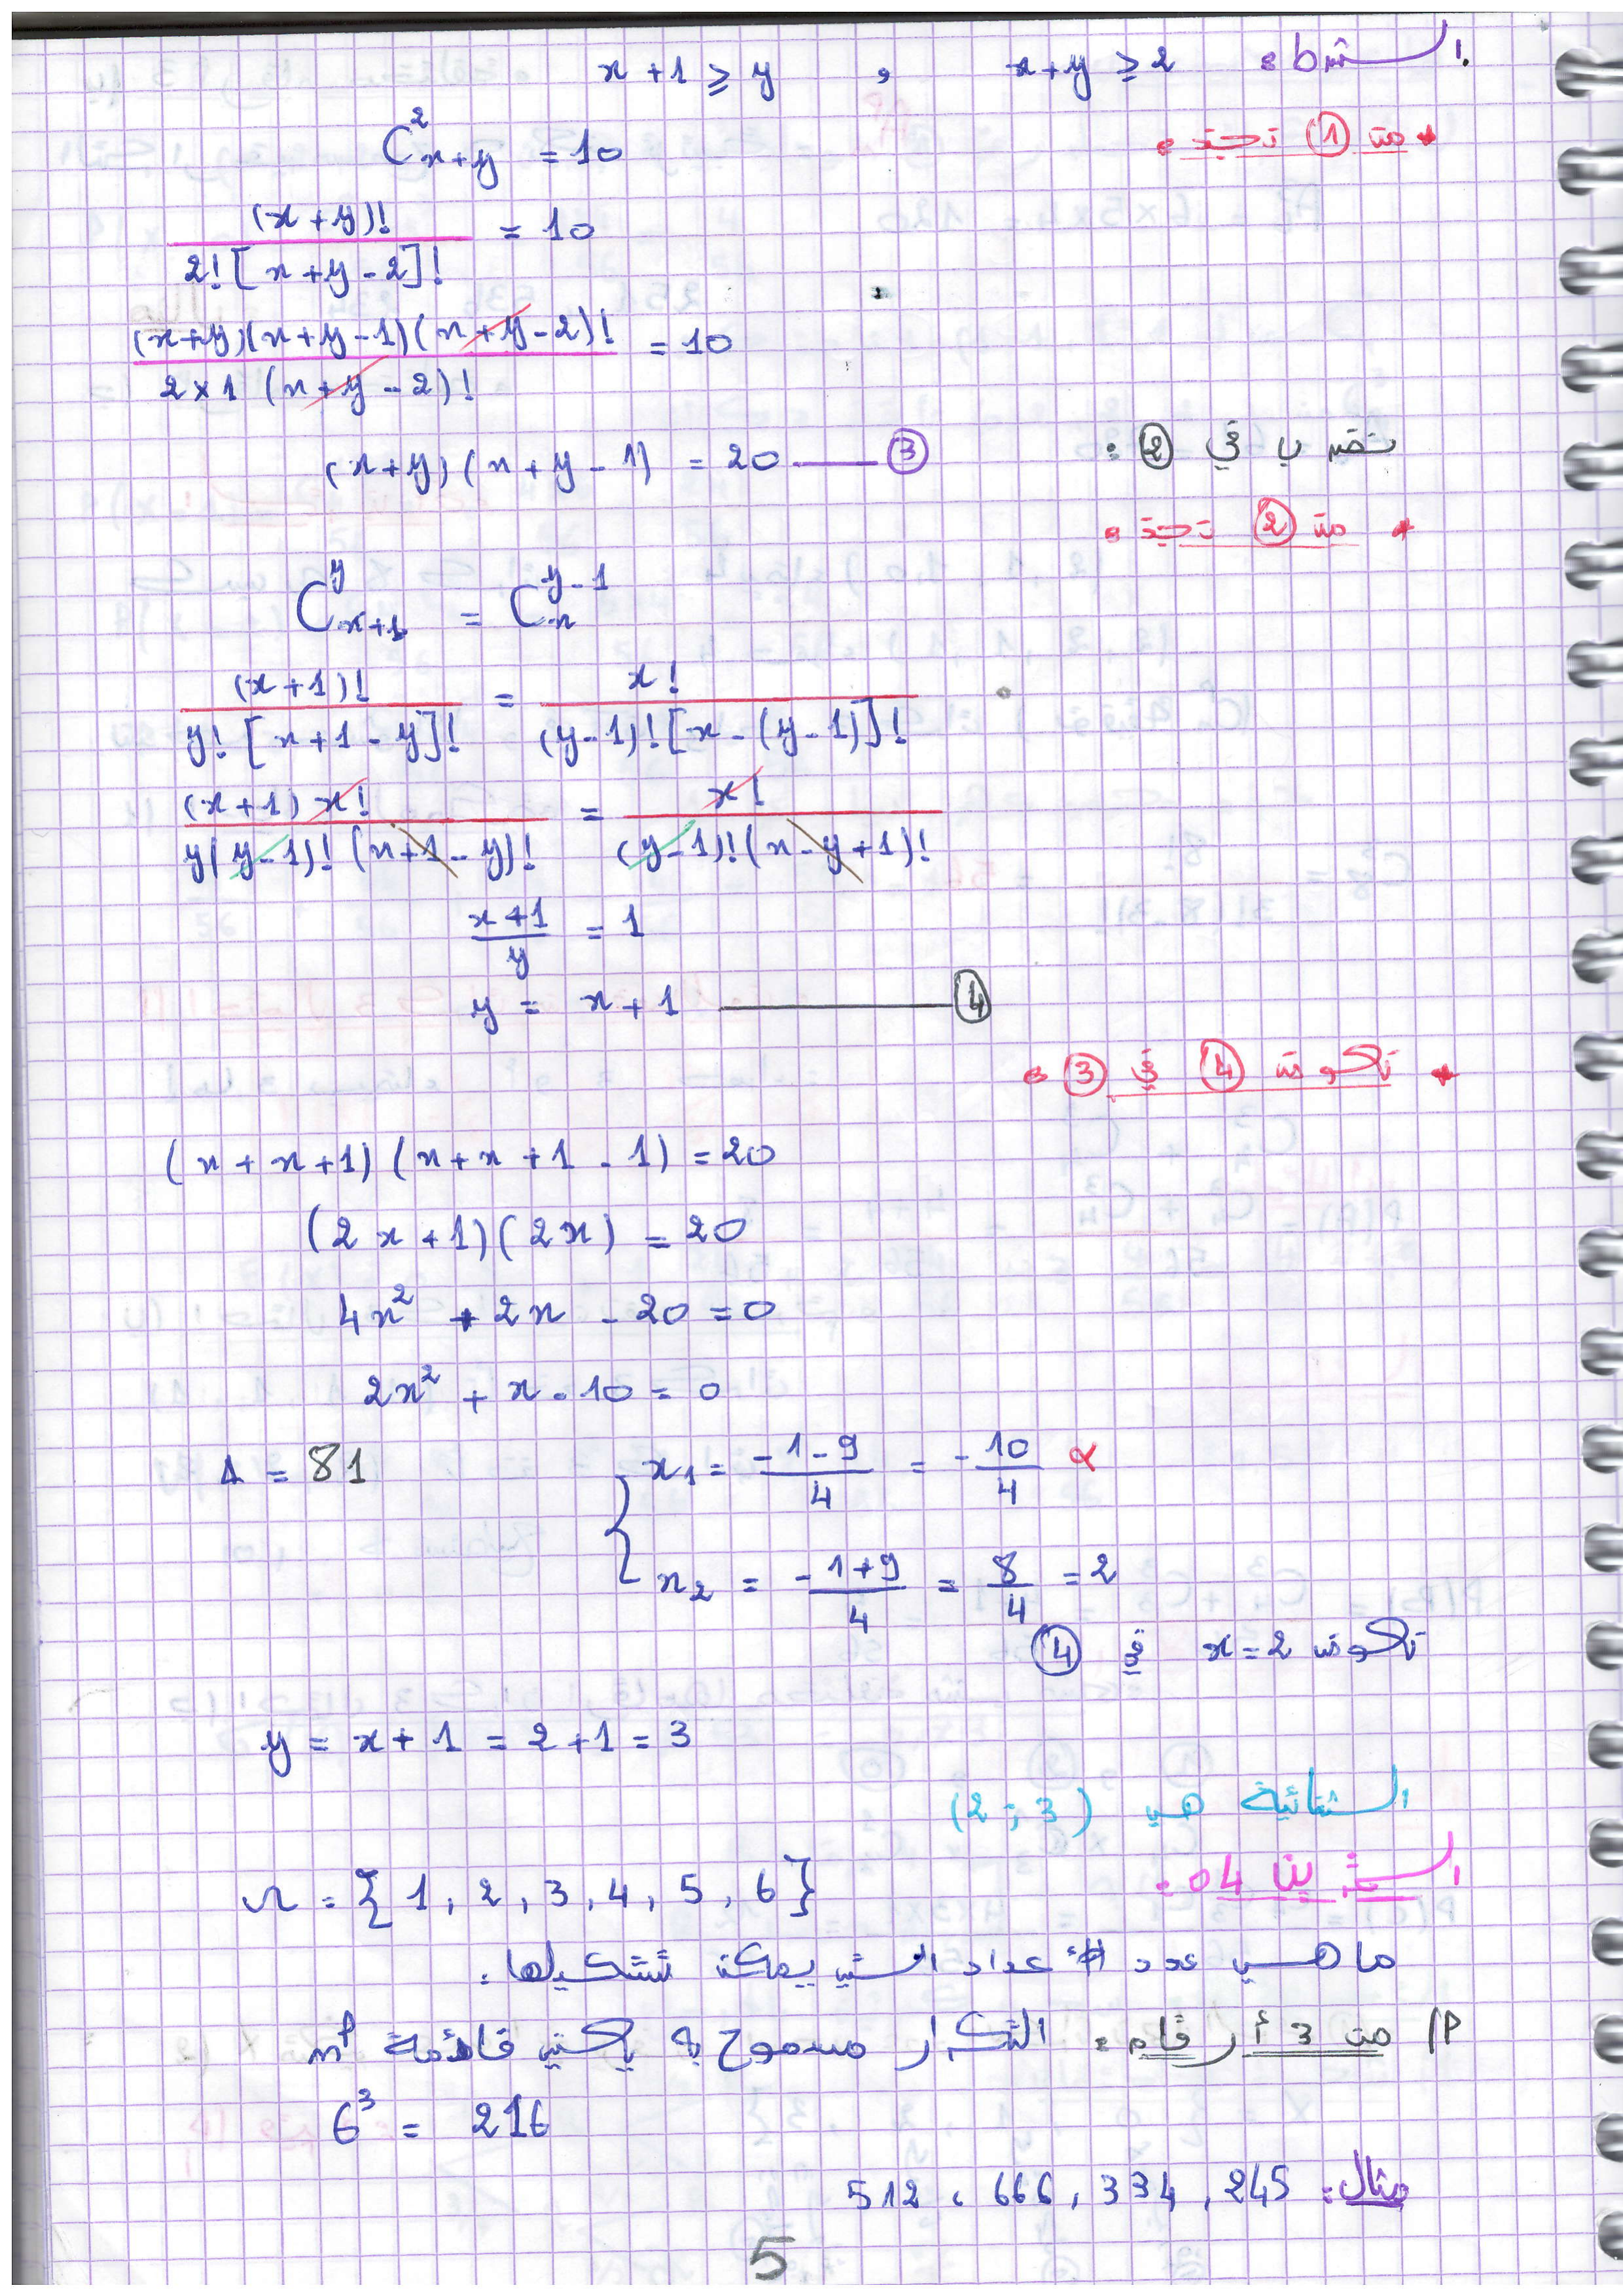 الشرط: x+y ≥ 2 , x+1 ≥ y
* من ① نجد:
C²ₓ₊ᵧ = 10
(x+y)! / 2![x+y-2]! = 10
(x+y)(x+y-1)(x+y-2)! / 2×1 (x+y-2)! = 10
(x+y)(x+y-1) = 20 —— ③
نضرب في ② :
* من ② نجد:
C_{x+1}^{y} = C_{x}^{y-1}
(x+1)! / y![x+1-y]! = x! / (y-1)![x-(y-1)]!
(x+1)x! / y(y-1)!(x+1-y)! = x! / (y-1)!(x-y+1)!
x+1 / y = 1
y = x+1 —— ④
* نعوض ④ في ③:
(x+x+1)(x+x+1-1) = 20
(2x+1)(2x) = 20
4x² + 2x - 20 = 0
2x² + x - 10 = 0
Δ = 81
x₁ = -1-9 / 4 = -10/4 ×
x₂ = -1+9 / 4 = 8/4 = 2
نعوض x=2 في ④
y = x+1 = 2+1 = 3
الثنائية هي (2;3)
التمرين 04:
Ω = {1, 2, 3, 4, 5, 6}
ما هي عدد الأعداد التي يمكن تشكيلها:
من 3 أرقام: التكرار مسموح به يعني قائمة nᵖ
6³ = 216
مثال: 245, 334, 666, 512
5